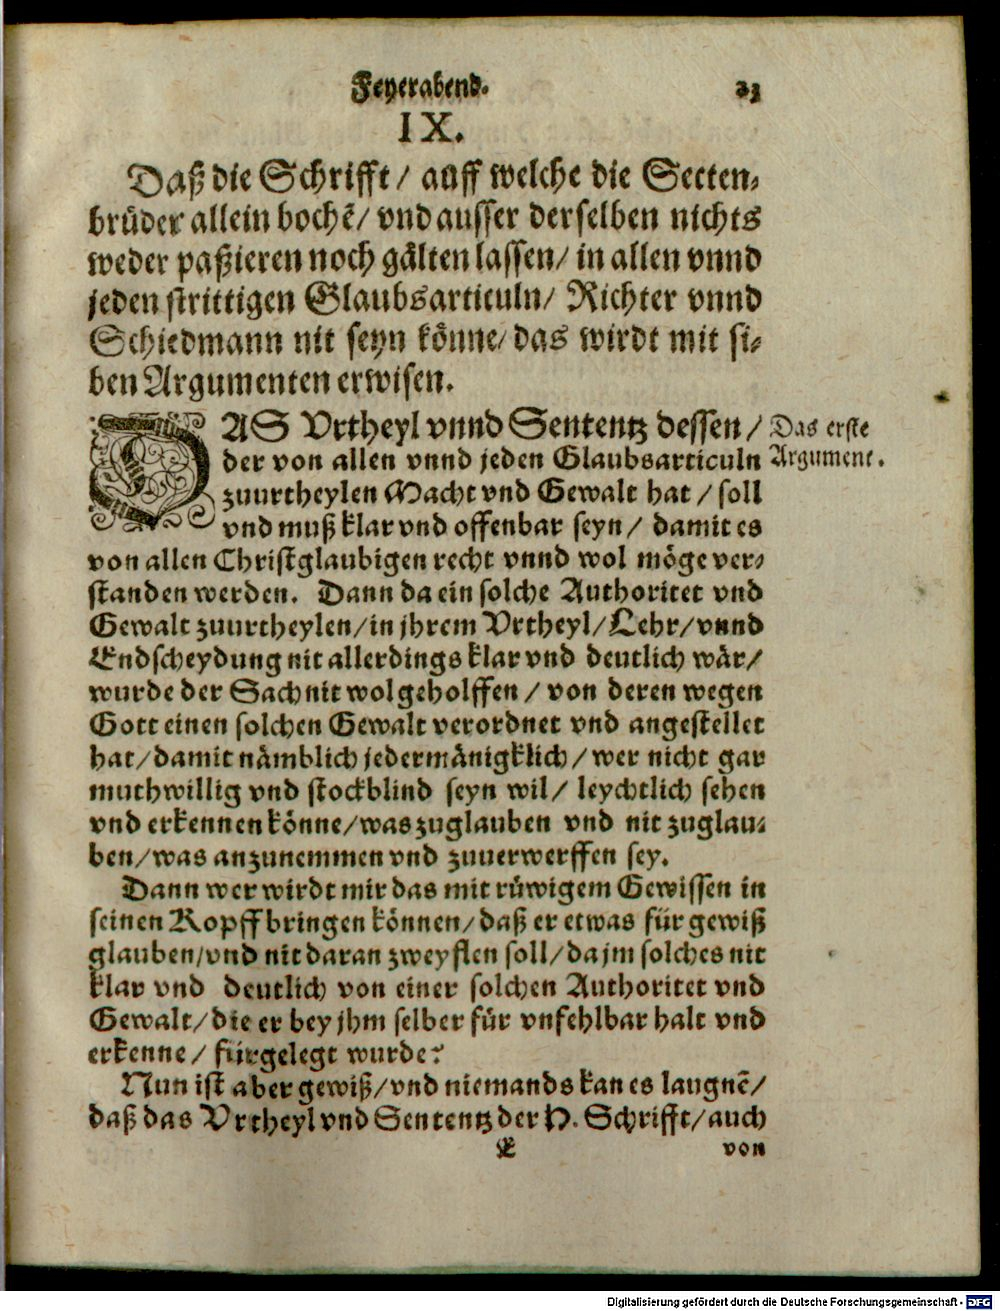 Feyerabend. 23
IX.
Daß die Schrifft/ auff welche die Secten-
brüder allein bochẽ/ vnd ausser derselben nichts
weder paßieren noch gälten lassen/ in allen vnnd
jeden strittigen Glaubsarticuln/ Richter vnnd
Schiedmann nit seyn könne/ das wirdt mit si-
ben Argumenten erwisen.
DAS Vrtheyl vnnd Sententz dessen/
Das erste
der von allen vnnd jeden Glaubsarticuln
Argument.
zuurtheylen Macht vnd Gewalt hat / soll
vnd muß klar vnd offenbar seyn/ damit es
von allen Christglaubigen recht vnnd wol möge ver-
standen werden. Dann da ein solche Authoritet vnd
Gewalt zuurtheylen/in jhrem Vrtheyl/Lehr/vnnd
Endscheydung nit allerdings klar vnd deutlich wär/
wurde der Sach nit wol geholffen / von deren wegen
Gott einen solchen Gewalt verordnet vnd angestellet
hat/damit nämblich jedermänigklich/wer nicht gar
muthwillig vnd stockblind seyn wil/ leychtlich sehen
vnd erkennen könne/was zuglauben vnd nit zuglau-
ben/was anzunemmen vnd zuuerwerffen sey.
Dann wer wirdt mir das mit rüwigem Gewissen in
seinen Kopff bringen können/daß er etwas für gewiß
glauben/vnd nit daran zweyflen soll/da jm solches nit
klar vnd deutlich von einer solchen Authoritet vnd
Gewalt/die er bey jhm selber für vnfehlbar halt vnd
erkenne/ fürgelegt wurde?
Nun ist aber gewiß/vnd niemands kan es laugnẽ/
daß das Vrtheyl vnd Sententz der H. Schrifft/auch
von
Digitalisierung gefördert durch die Deutsche Forschungsgemeinschaft - DFG